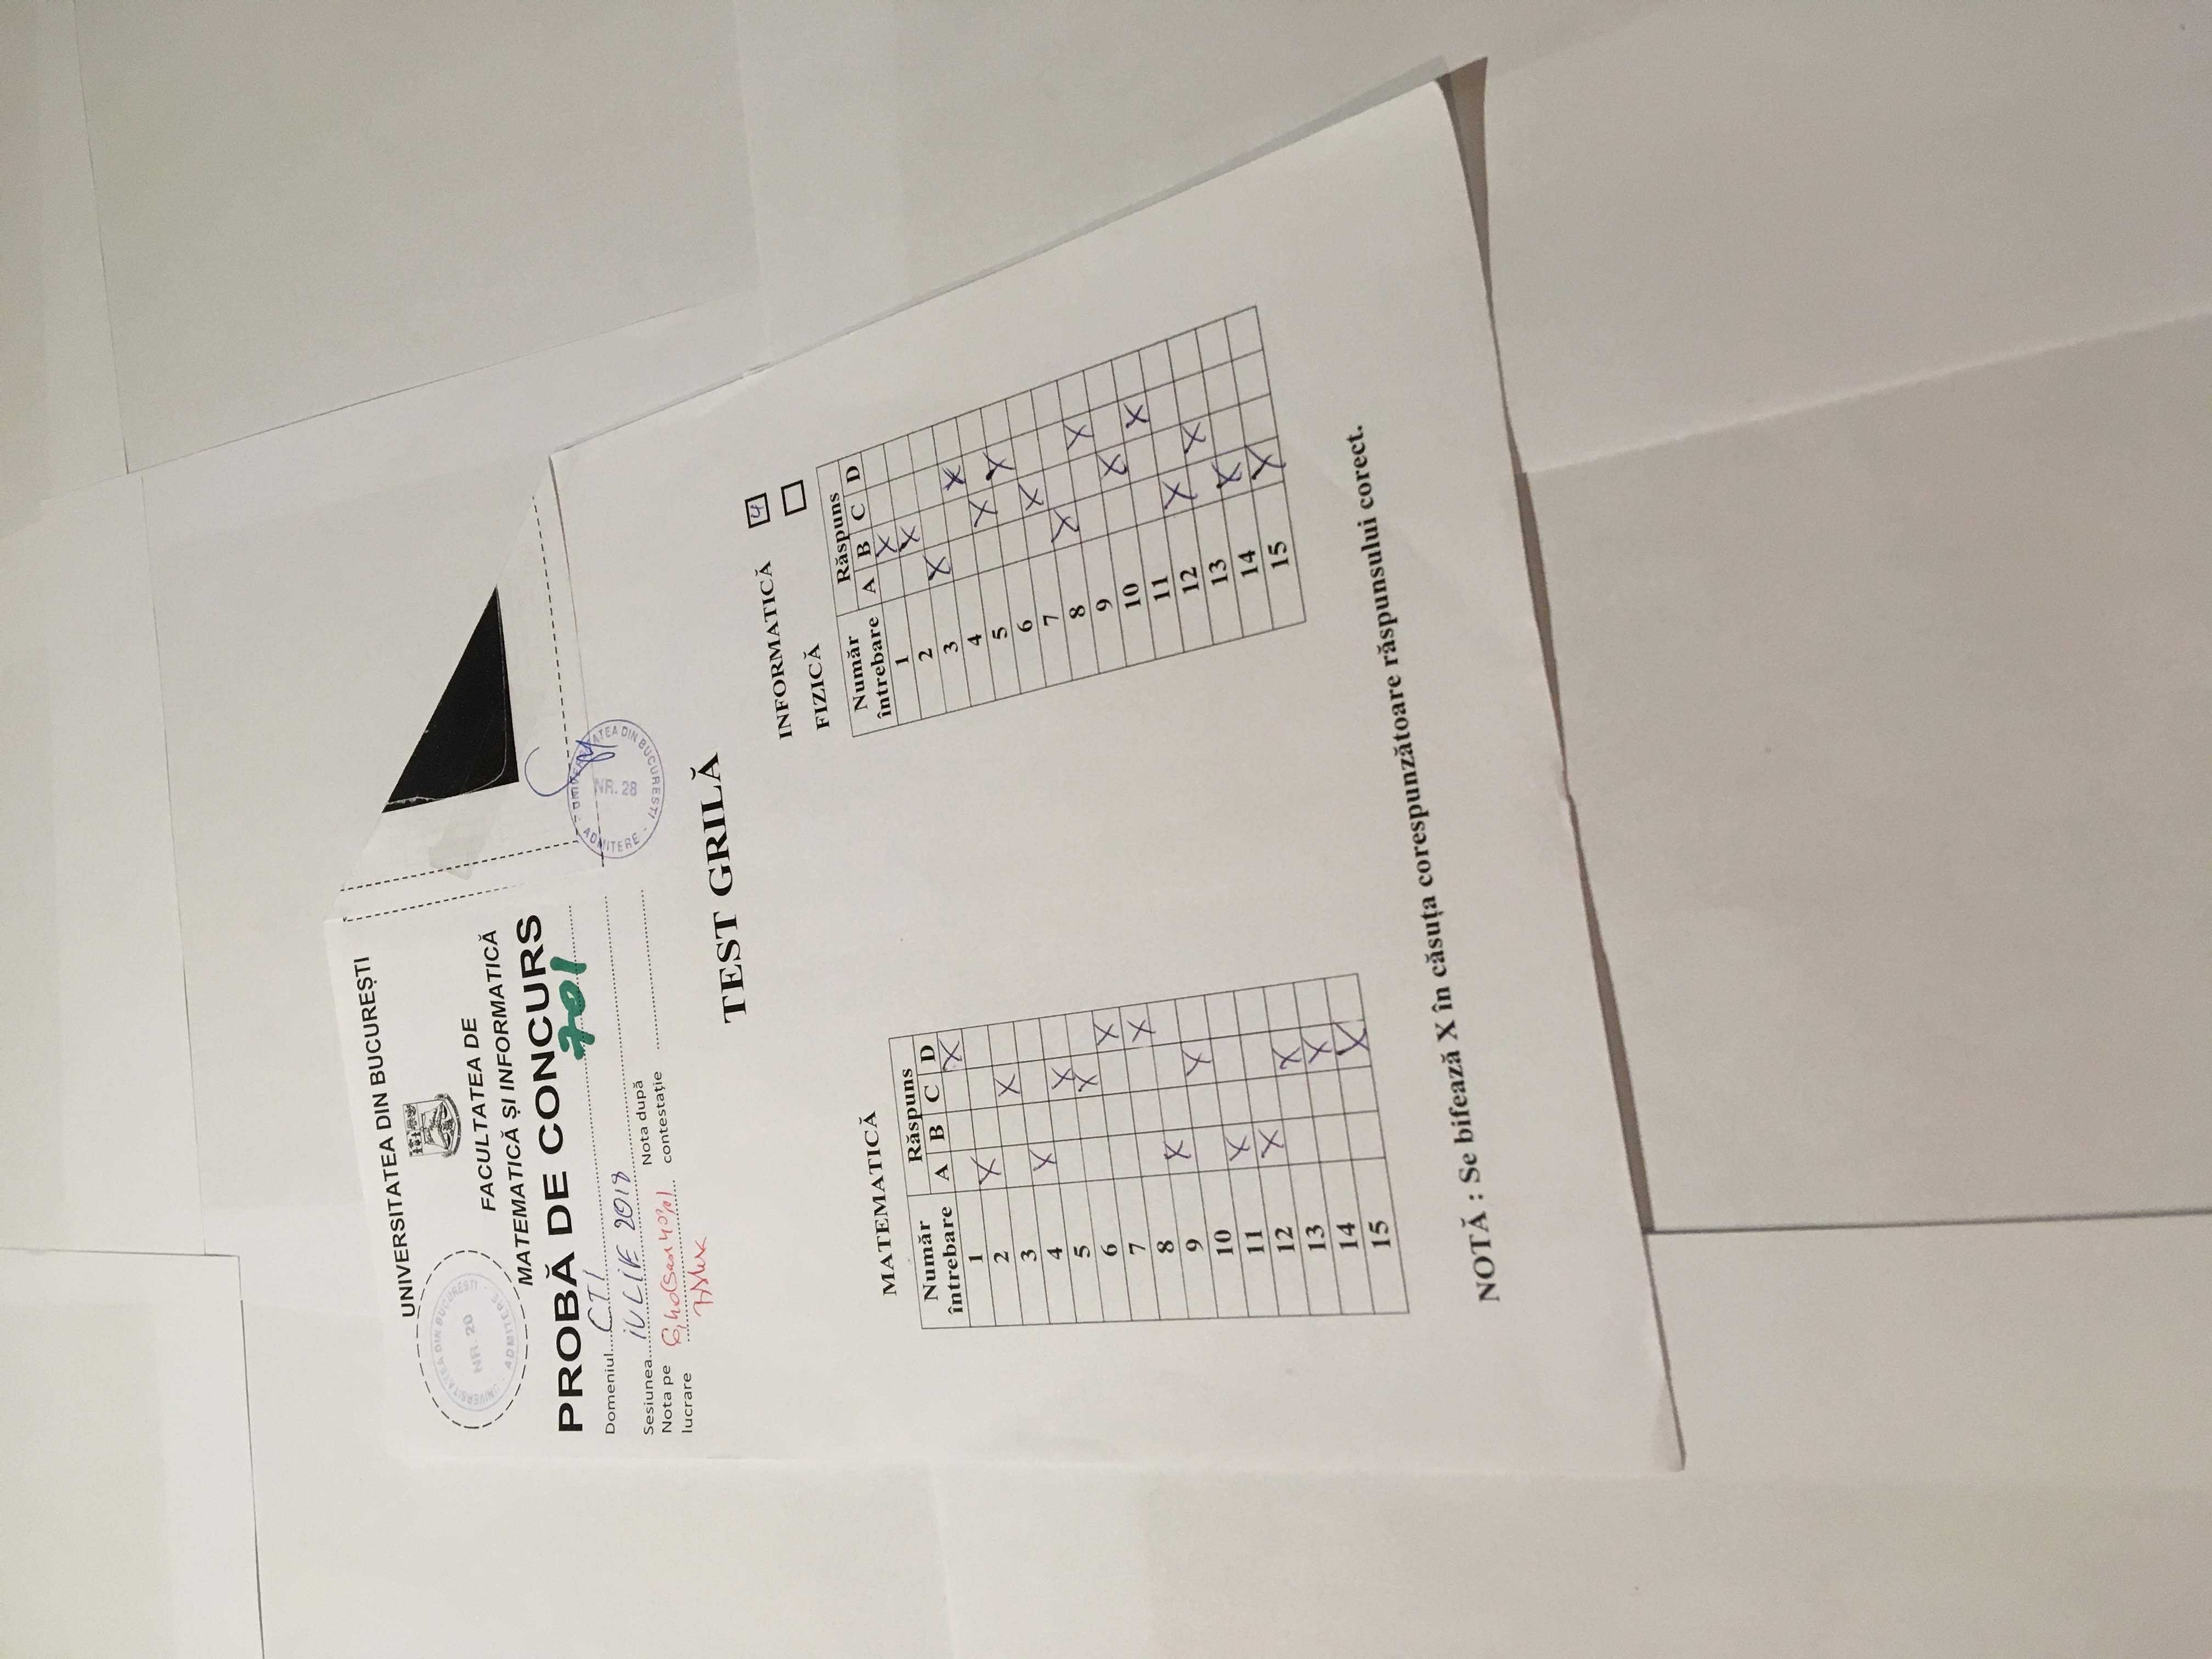 UNIVERSITATEA DIN BUCUREȘTI
UNIVERSITATEA DIN BUCUREȘTI
NR. 20
ADMITERE
FACULTATEA DE
MATEMATICĂ ȘI INFORMATICĂ
PROBĂ DE CONCURS
701
Domeniul....CTI
Sesiunea...IULIE 2018
Nota pe lucrare 6,40
Nota după contestație
UNIVERSITATEA DIN BUCURESTI
NR. 28
ADMITERE
TEST GRILĂ
MATEMATICĂ
Număr întrebare Răspuns
A B C D
1 X
2 X
3 X
4 X
5 X
6 X
7 X
8 X
9 X
10 X
11 X
12 X
13 X
14 X
15 X
INFORMATICĂ 4
FIZICĂ
Număr întrebare Răspuns
A B C D
1 X
2 X
3 X
4 X
5 X
6 X
7 X
8 X
9 X
10 X
11 X
12 X
13 X
14 X
15 X
NOTĂ : Se bifează X în căsuța corespunzătoare răspunsului corect.